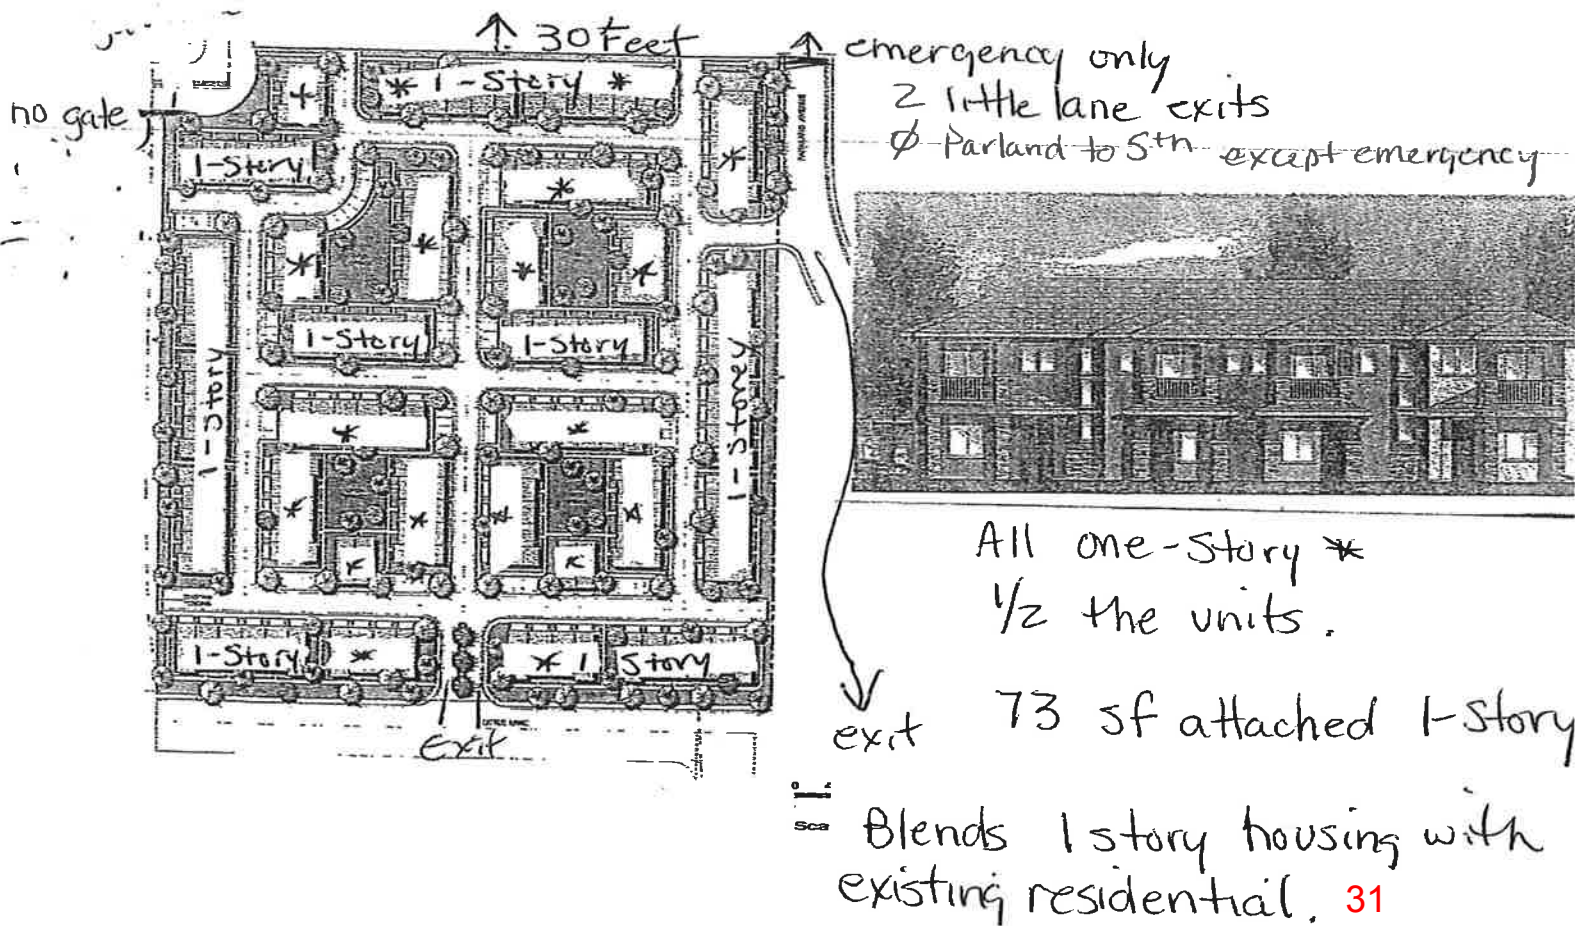 30 Feet
emergency only
2 little lane exits
∅ Parland to 5th except emergency
no gate
* 1-Story *
1-Story
1-Story
1-Story
1-Story
1-Storey
All one-story *
1/2 the units.
1-Story *
* 1 Story
exit
Exit
73 sf attached 1-story
Sca
Blends 1 story housing with
existing residential. 31